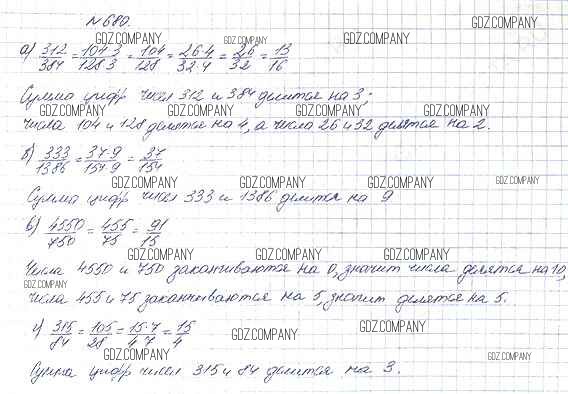 №680.
GDZ.COMPANY
GDZ.COMPANY GDZ.COMPANY GDZ.COMPANY
а) 312/384 = 104·3/128·3 = 104/128 = 26·4/32·4 = 26/32 = 13/16
Сумма цифр чисел 312 и 384 делится на 3;
GDZ.COMPANY GDZ.COMPANY GDZ.COMPANY GDZ.COMPANY
числа 104 и 128 делятся на 4, а числа 26 и 32 делятся на 2.
б) 333/1386 = 37·9/154·9 = 37/154
GDZ.COMPANY GDZ.COMPANY GDZ.COMPANY GDZ.COMPANY
Сумма цифр чисел 333 и 1386 делится на 9
в) 4550/750 = 455/75 = 91/15
GDZ.COMPANY GDZ.COMPANY GDZ.COMPANY
Числа 4550 и 750 заканчиваются на 0, значит числа делятся на 10,
GDZ.COMPANY
числа 455 и 75 заканчиваются на 5, значит делятся на 5.
г) 315/84 = 105/28 = 15·7/4·7 = 15/4
GDZ.COMPANY GDZ.COMPANY
GDZ.COMPANY GDZ.COMPANY
Сумма цифр чисел 315 и 84 делится на 3.